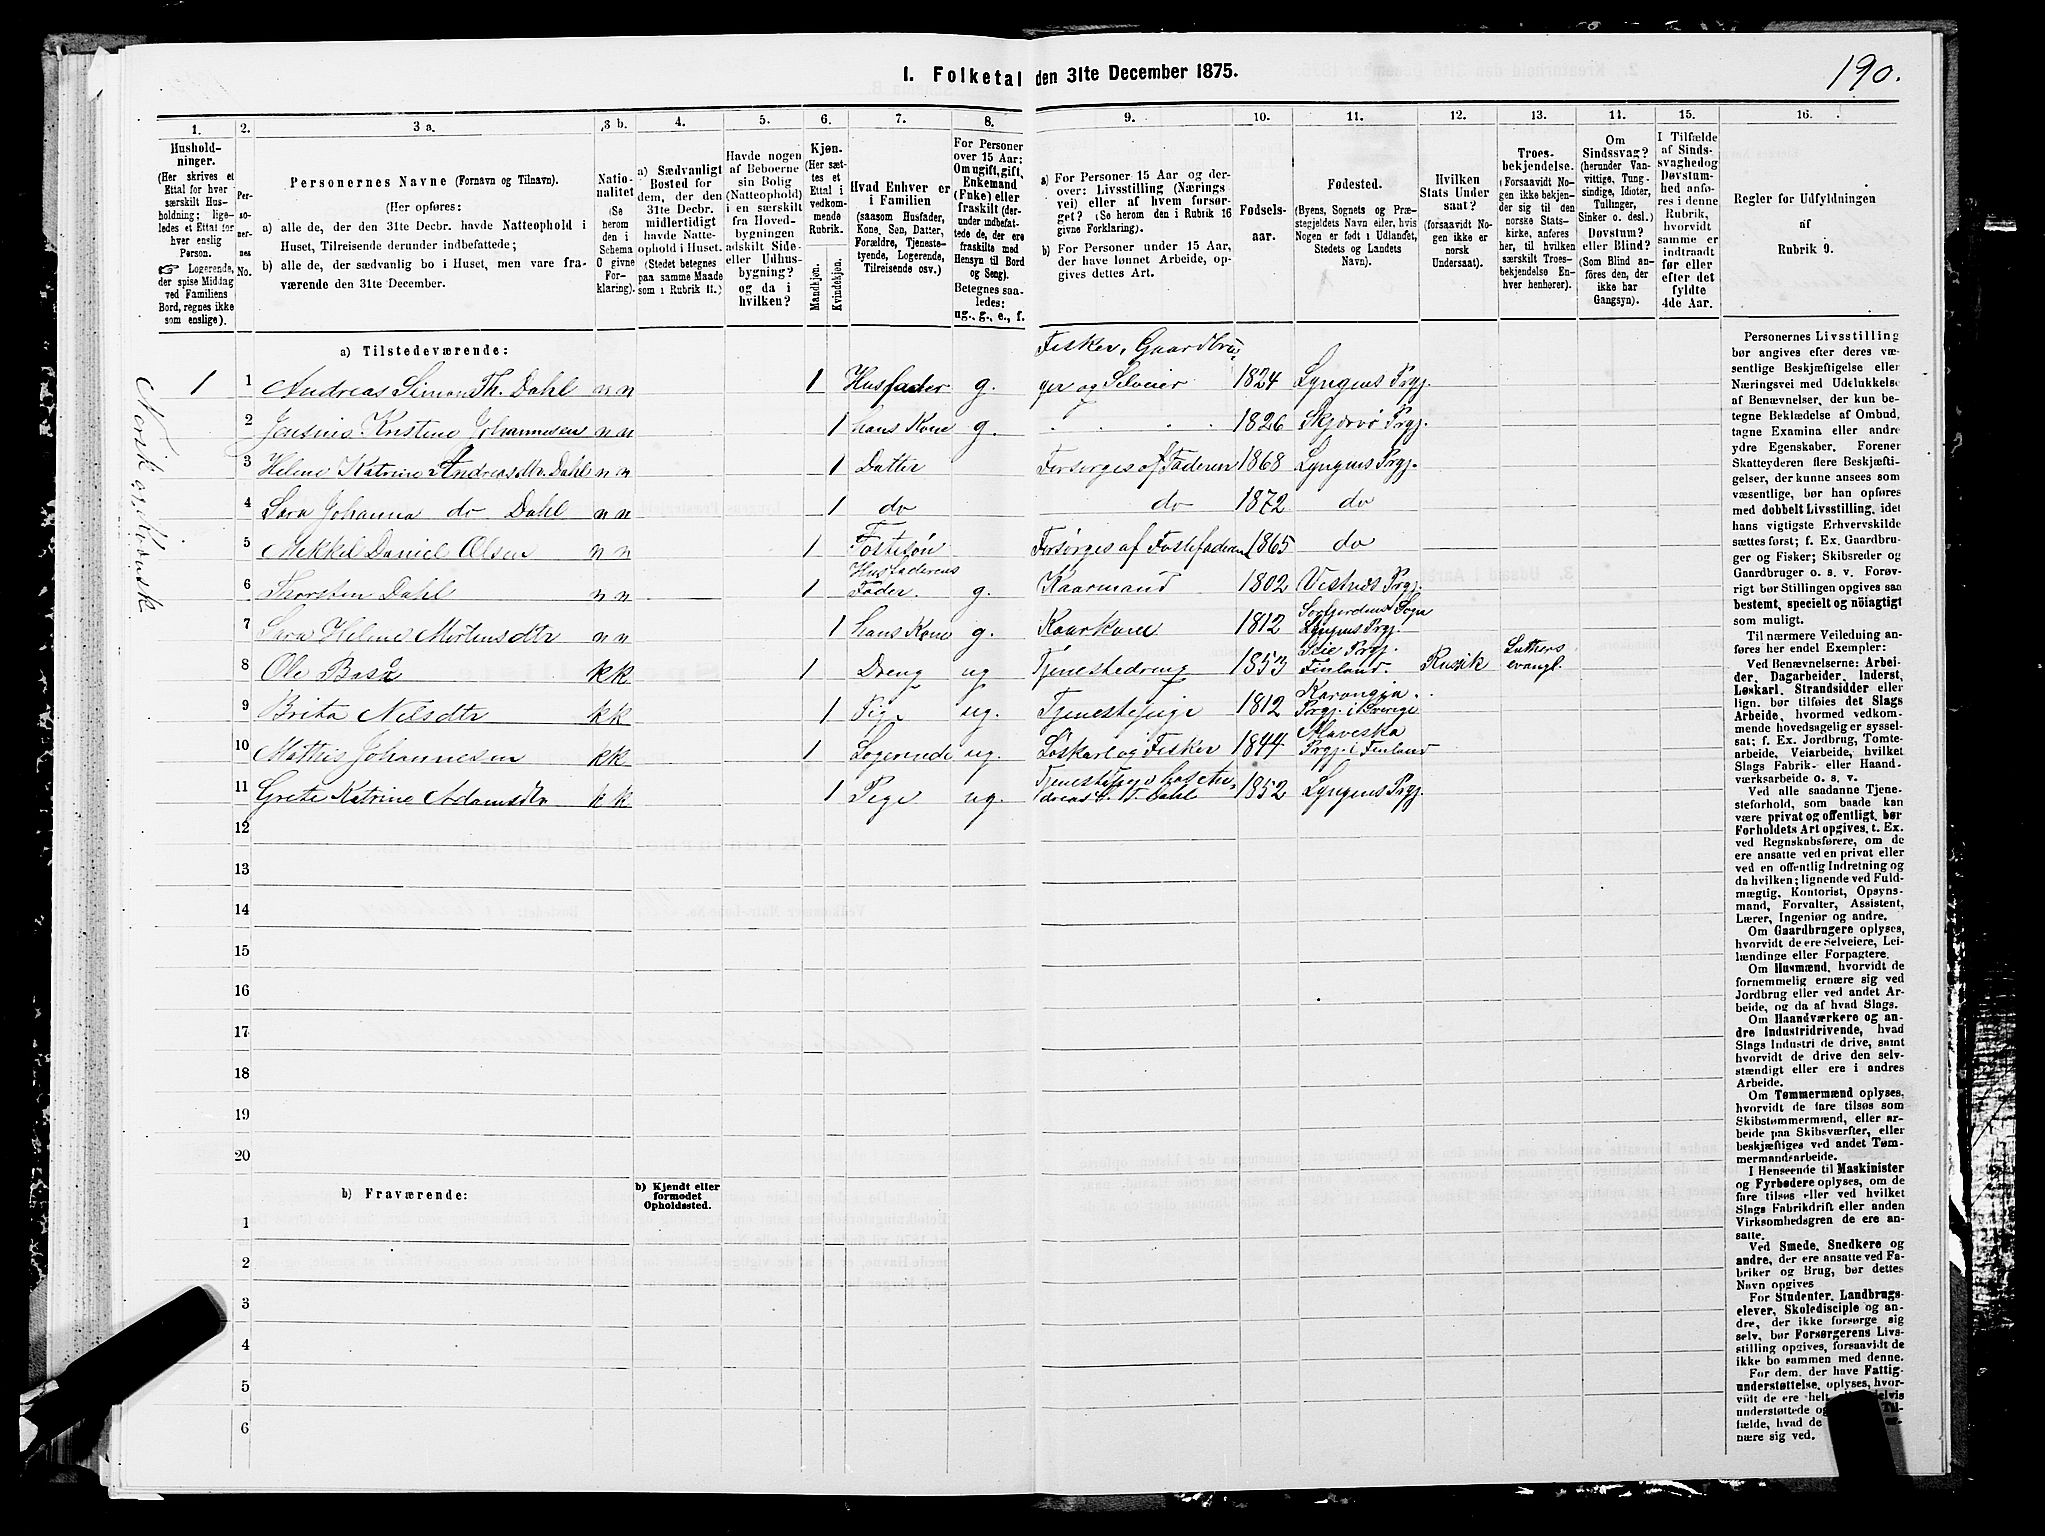 190.
I. Folketal den 31te December 1875.
1. 2. 3 a. 3 b. 4. 5. 6. 7. 8. 9. 10. 11. 12. 13. 11. 15. 16.
Hushold-
ninger.
(Her skrives et
Ettal for hver
særskilt Hus-
holdning; lige-
ledes et Ettal for
hver enslig
Person.
☞ Logerende,
der spise Middag
ved Familiens
Bord, regnes ikke
som enslige).
Per-
so-
ner-
nes
No.
Personernes Navne (Fornavn og Tilnavn).
(Her opføres:
a) alle de, der den 31te Decbr. havde Natteophold i
Huset, Tilreisende derunder indbefattede;
b) alle de, der sædvanlig bo i Huset, men vare fra-
værende den 31te December.
Natio-
nalitet
(Se
herom
den i
Schema
O givne
For-
klaring).
a) Sædvanligt
Bosted for
dem, der den
31te Decbr.
midlertidigt
havde Natte-
ophold i Huset.
(Stedet betegnes
paa samme Maade
som i Rubrik 11.)
Havde nogen
af Beboerne
sin Bolig
(Natteophold)
i en særskilt
fra Hoved-
bygningen
adskilt Side-
eller Udhus-
bygning?
og da i
hvilken?
Kjøn.
(Her sæt-
tes et
Ettal i
vedkom-
mende
Rubrik.
Mandkjøn.
Kvindekjøn.
Hvad Enhver er
i Familien
(saasom Husfader,
Kone, Søn, Datter,
Forældre, Tjeneste-
tyende, Logerende,
Tilreisende osv.)
For Personer
over 15 Aar:
Om ugift, gift,
Enkemand
(Enke) eller
fraskilt (der-
under indbefat-
tede de, der ere
fraskilte med
Hensyn til Bord
og Seng).
Betegnes saa-
ledes:
ug., g., e., f.
a) For Personer 15 Aar og der-
over: Livsstilling (Nærings-
vei) eller af hvem forsør-
get? (Se herom den i Rubrik 16
givne Forklaring).
b) For Personer under 15 Aar,
der have lønnet Arbeide, op-
gives dettes Art.
Fødsels-
aar.
Fødested.
(Byens, Sognets og Præ-
stegjeldets Navn eller, hvis
Nogen er født i Udlandet,
Stedets og Landets
Navn).
Hvilken
Stats Under-
saat?
(forsaavidt No-
gen ikke er
norsk
Undersaat).
Troes-
bekjendelse.
(Forsaavidt No-
gen ikke bekjen-
der sig til den
norske Stats-
kirke, anføres
her, til hvilken
særskilt Troes-
bekjendelse En-
hver henhører).
Om
Sindssvag?
(herunder Van-
vittige, Tung-
sindige, Idioter,
Tullinger,
Sinker o. desl.)
Døvstum?
eller Blind?
(Som Blind an-
føres den, der
ikke har
Gangsyn).
I Tilfælde
af Sinds-
svaghed og
Døvstum-
hed anfø-
res i denne
Rubrik,
hvorvidt
samme er
indtraadt
før eller
efter det
fyldte
4de Aar.
Regler for Udfyldningen
af
Rubrik 9.
a) Tilstedeværende:
Norsk og Kvænsk
1 1 Andreas Simon Th. Dahl n n 1 Husfader g. Fisker, Gaardbru-
ger og Selveier 1824 Lyngens Prgj.
2 Jensine Kristine Johannesen n n 1 hans Kone g. 1826 Skjervø Prgj.
3 Helene Katrine Andreasdtr. Dahl n n 1 Datter Forsørges af Faderen 1868 Lyngens Prgj.
4 Sara Johanna do Dahl n n 1 do do 1872 do
5 Mekkel Daniel Olsen n n 1 Fostesøn Forsørges af Fostefaderen 1865 do
6 Thorsten Dahl n n 1 Husfaderens
Fader. g. Kaarmand 1802 Vestnes Prgj.
7 Sara Helene Mortensdtr n n 1 hans Kone g. Kaarkone 1812 Sørfjordens Sogn
Lyngens Prgj.
8 Ole k k 1 Dreng ug Tjenestedreng 1853 Prgj.
Finland. Russik Luthers
evangl.
9 Brita Nilsdtr k k 1 Pige ug. Tjenestepige 1812 Karangia
Prgj. i Sverige
10 Mathis Johannesen k k 1 Logerende ug. Løskarl og Fisker 1844
Prgj. i Finland
11 Grete Katrine Adamsdtr k k 1 Pige ug. Tjenestepige hos An-
dreas S. T. Dahl 1852 Lyngens Prgj.
12
13
14
15
16
17
18
19
20
b) Fraværende:
b) Kjendt eller
formodet
Opholdssted.
1
2
3
4
5
6
Personernes Livsstilling
bør angives efter deres væ-
sentlige Beskjæftigelse eller
Næringsvei med Udelukkelse
af Benævnelser, der kun be-
tegne Beklædelse af Ombud,
tagne Examina eller andre
ydre Egenskaber. Forener
Skatteyderen flere Beskjæfti-
gelser, der kunne ansees som
væsentlige, bør han opføres
med dobbelt Livsstilling, idet
hans vigtigste Erhvervskilde
sættes først; f. Ex. Gaardbru-
ger og Fisker; Skibsreder og
Gaardbruger o. s. v. Forøv-
rigt bør Stillingen opgives saa
bestemt, specielt og nöiagtigt
som muligt.
Til nærmere Veiledning an-
føres her endel Exempler:
Ved Benævnelserne: Arbei-
der, Dagarbeider, Inderst,
Løskarl, Strandsidder eller
lign. bør tilføies det Slags
Arbeide, hvormed vedkom-
mende hovedsagelig er syssel-
sat; f. Ex. Jordbrug, Tomte-
arbeide, Veiarbeide, hvilket
Slags Fabrik- eller Haand-
værksarbeide o. s. v.
Ved alle saadanne Tjene-
steforhold, som baade kan
være privat og offentligt, bør
Forholdets Art opgives, t. Ex.
ved Regnskabsførere, om de
ere ansatte ved en privat eller
ved en offentlig Indretning og
da hvilken; lignende ved Fuld-
mægtig, Kontorist, Opsyns-
mand, Forvalter, Assistent,
Lærer, Ingeniør og andre.
Om Gaardbrugere oplyses,
hvorvidt de ere Selveiere, Lei-
lændinge eller Forpagtere.
Om Husmænd, hvorvidt de
fornemmelig ernære sig ved
Jordbrug eller ved andet Ar-
beide, og da af hvad Slags.
Om Haandværkere og an-
dre Industridrivende, hvad
Slags Industri de drive, samt
hvorvidt de drive den selv-
stændigt eller ere i andres
Arbeide.
Om Tømmermænd oplyses,
hvorvidt de fare tilsøs som
Skibstømmermænd, eller ar-
beide paa Skibsværfter, eller
beskjæftiges ved andet Tøm-
mermandarbeide.
I Henseende til Maskinister
og Fyrbødere oplyses, om de
fare tilsøs eller ved hvilket
Slags Fabrikdrift eller anden
Virksomhedsgren de ere an-
satte.
Ved Smede, Snedkere og
andre, der ere ansatte ved Fa-
briker og Brug, bør dettes
Navn opgives
For Studenter, Landbrugs-
elever, Skoledisciple og an-
dre, der ikke forsørge sig
selv, bør Forsørgerens Livs-
stilling opgives, forsaavidt de
ikke bo sammen med denne.
For dem, der have Fattig-
understøttelse, oplyses, hvor-
vidt de ere helt
understøttede og
fælde, hvad de
nære sig ved.